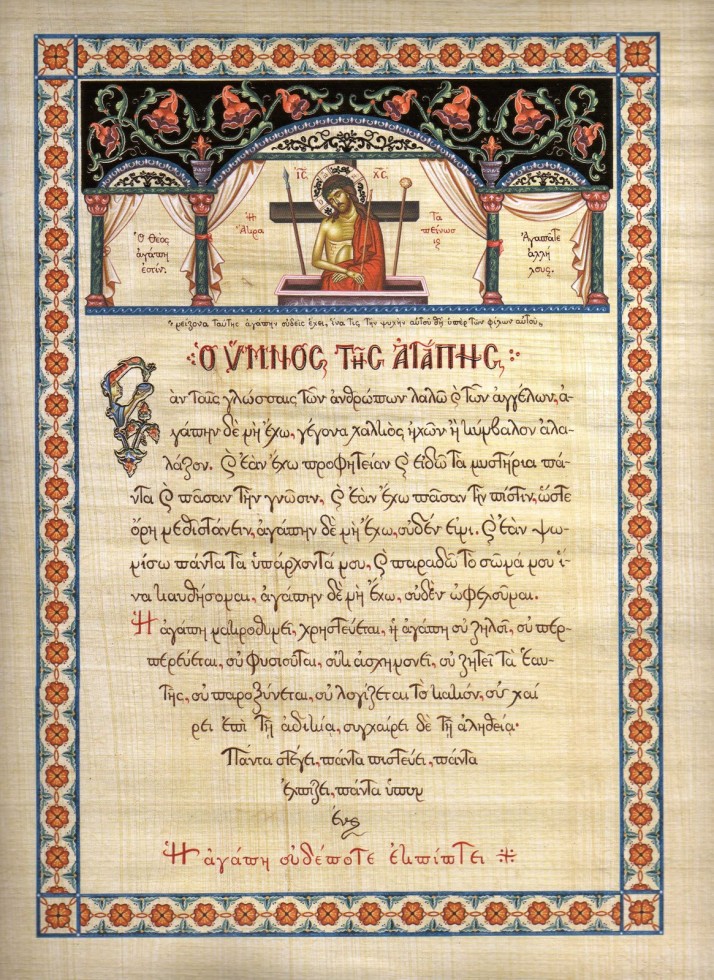 ΙC ΧC
Ὁ Θεὸς
ἀγάπη
ἐστίν.
Ἡ
Ἄκρα
Τα
πείνωσ
ις
Ἀγαπᾶτε
ἀλλή
λους.
"μείζονα ταύτης ἀγάπην οὐδεὶς ἔχει, ἵνα τις τὴν ψυχὴν αὐτοῦ θῇ ὑπὲρ τῶν φίλων αὐτοῦ"
Ὁ ὝΜΝΟΣ ΤΗ͂Σ ἈΓΆΠΗΣ
Ἐὰν ταῖς γλώσσαις τῶν ἀνθρώπων λαλῶ ϛ̀ τῶν ἀγγέλων, ἀ-
γάπην δὲ μὴ ἔχω, γέγονα χαλκὸς ἠχῶν ἢ κύμβαλον ἀλα-
λάζον. ϛ̀ ἐὰν ἔχω προφητείαν ϛ̀ εἰδῶ τὰ μυστήρια πά-
ντα ϛ̀ πᾶσαν τὴν γνῶσιν, ϛ̀ ἐὰν ἔχω πᾶσαν τὴν πίστιν, ὥστε
ὄρη μεθιστάνειν, ἀγάπην δὲ μὴ ἔχω, οὐδέν εἰμι. ϛ̀ ἐὰν ψω-
μίσω πάντα τὰ ὑπάρχοντά μου, ϛ̀ παραδῶ τὸ σῶμά μου ἵ-
να καυθήσομαι, ἀγάπην δὲ μὴ ἔχω, οὐδὲν ὠφελοῦμαι.
Ἡ ἀγάπη μακροθυμεῖ, χρηστεύεται, ἡ ἀγάπη οὐ ζηλοῖ, οὐ περ-
περεύεται, οὐ φυσιοῦται, οὐκ ἀσχημονεῖ, οὐ ζητεῖ τὰ ἑαυ-
τῆς, οὐ παροξύνεται, οὐ λογίζεται τὸ κακόν, οὐ χαί
ρει ἐπὶ τῇ ἀδικίᾳ, συγχαίρει δὲ τῇ ἀληθείᾳ·
Πάντα στέγει, πάντα πιστεύει, πάντα
ἐλπίζει, πάντα ὑπομ
ένει
Ἡ ἀγάπη οὐδέποτε ἐκπίπτει